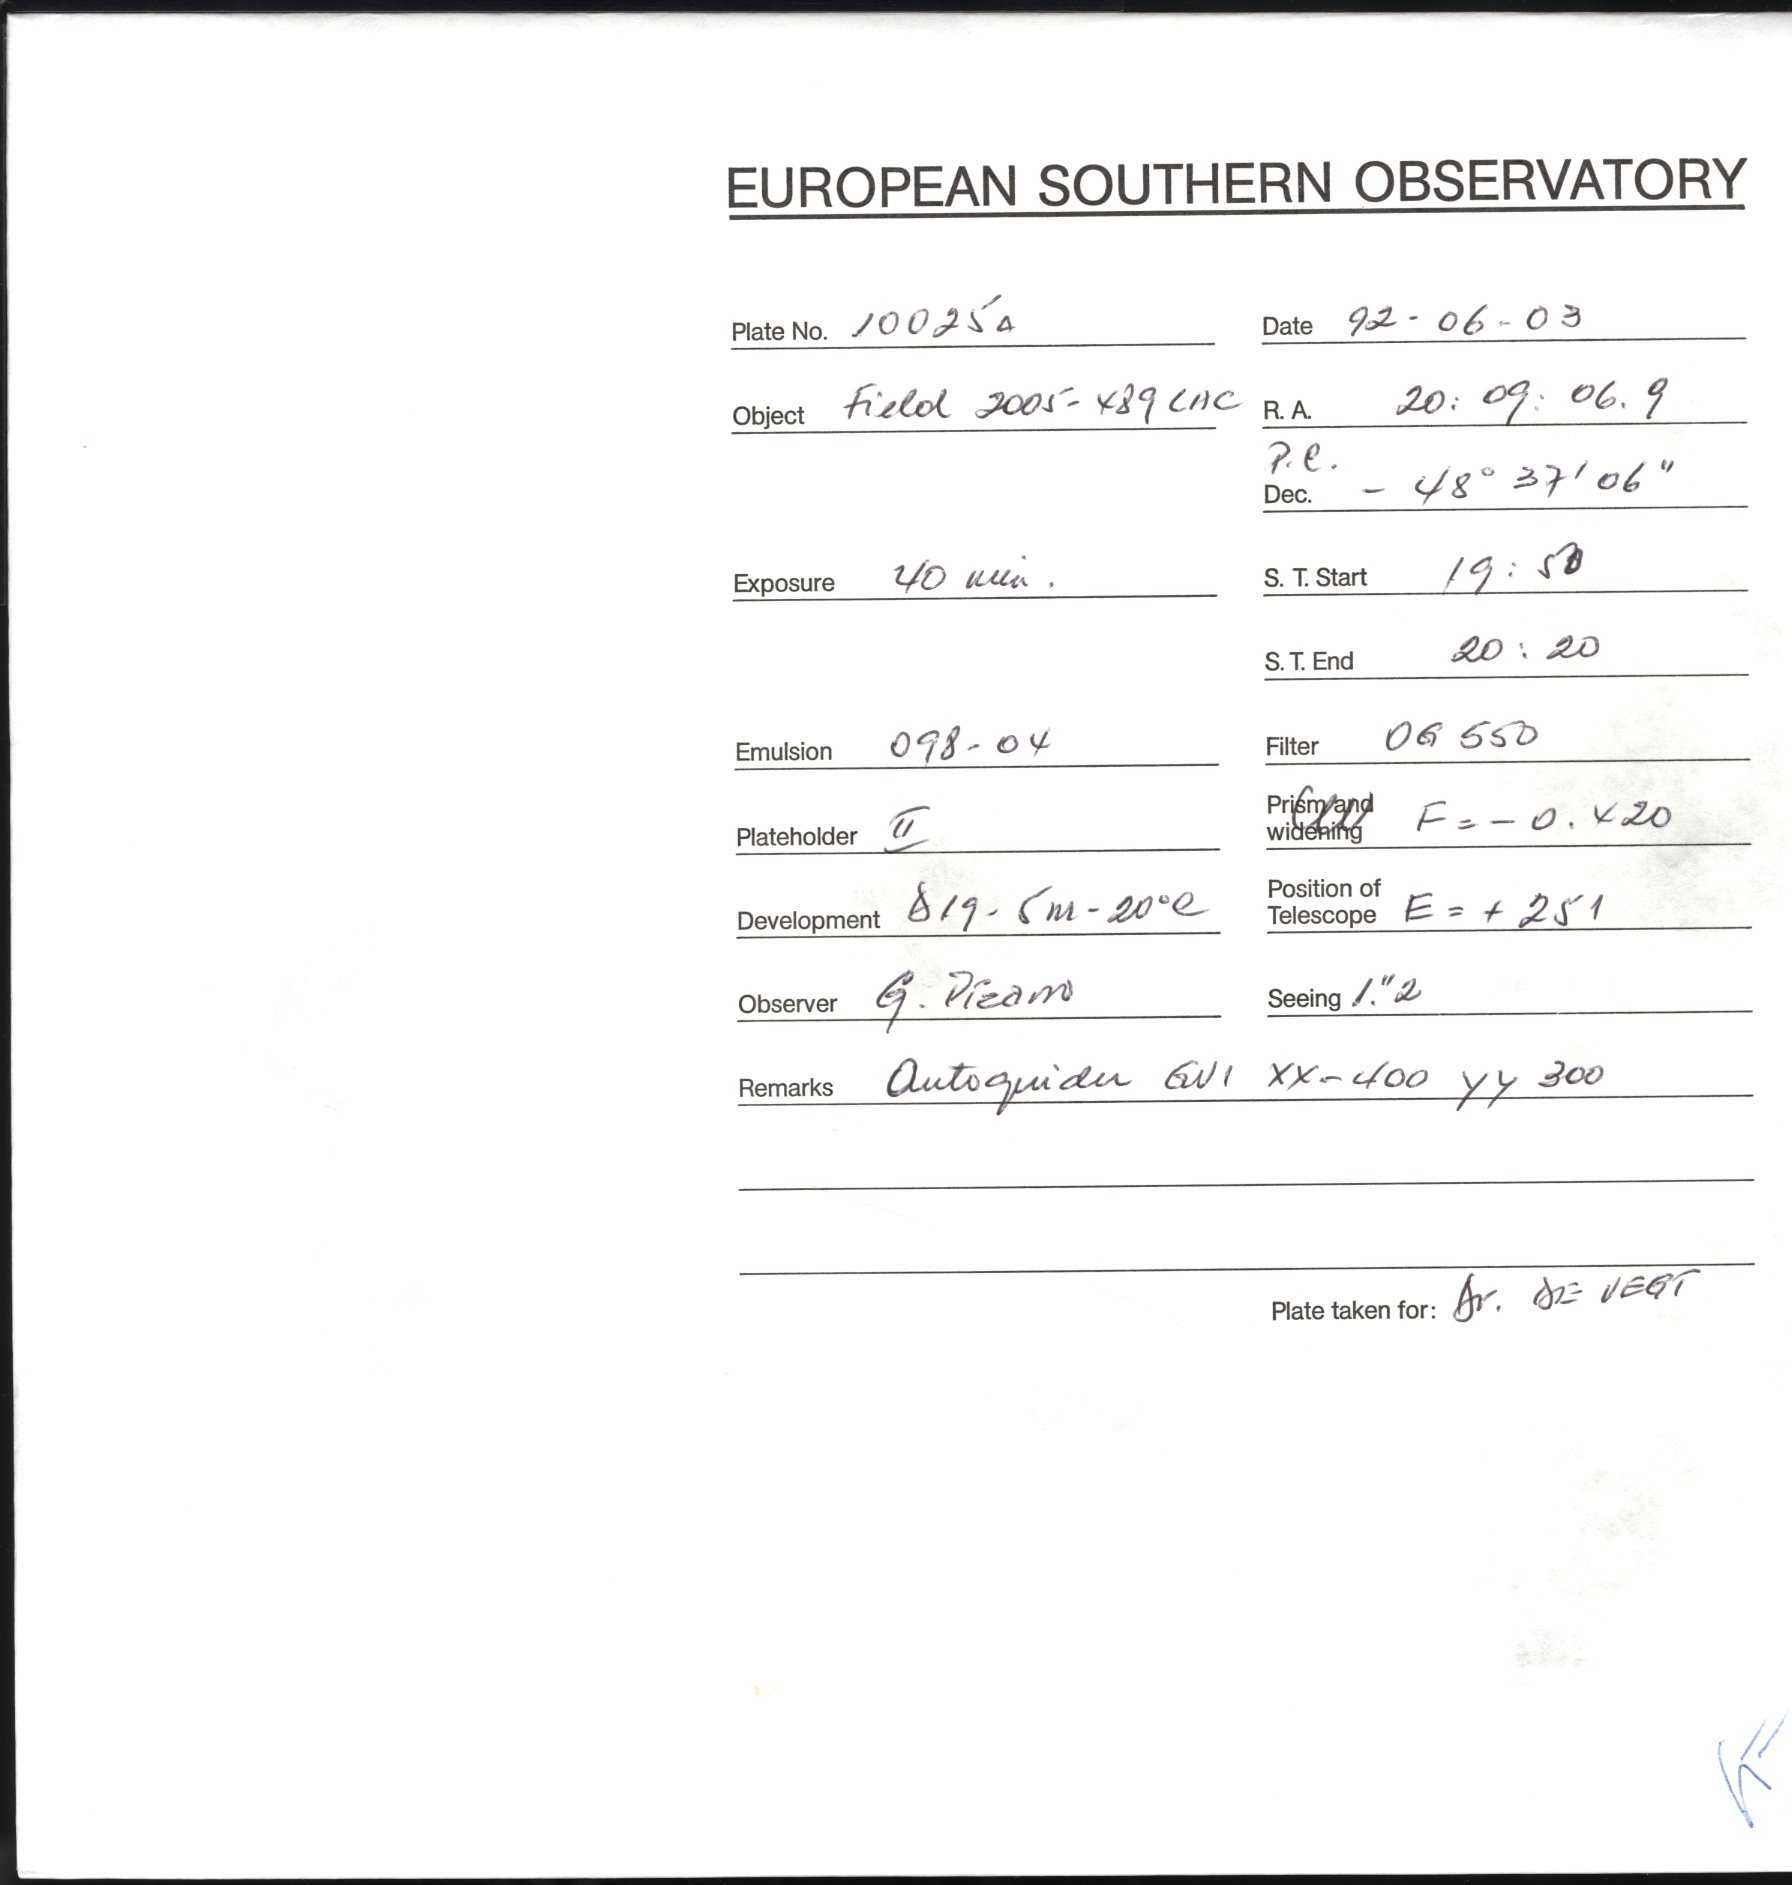 EUROPEAN SOUTHERN OBSERVATORY
Plate No. 10025A Date 92-06-03
Object Field 2005-489 LAC R. A. 20: 09: 06.9
P.C.
Dec. - 48° 37' 06"
Exposure 40 min. S. T. Start 19:
S. T. End 20: 20
Emulsion 098-04 Filter OG 550
Plateholder II Prism and widening F = - 0.420
Development D19 - 5m - 20°C Position of Telescope E = + 251
Observer G. Pizarro Seeing 1."2
Remarks Autoguider GV1 XX-400 YY 300
Plate taken for: Dr. DE VEGT